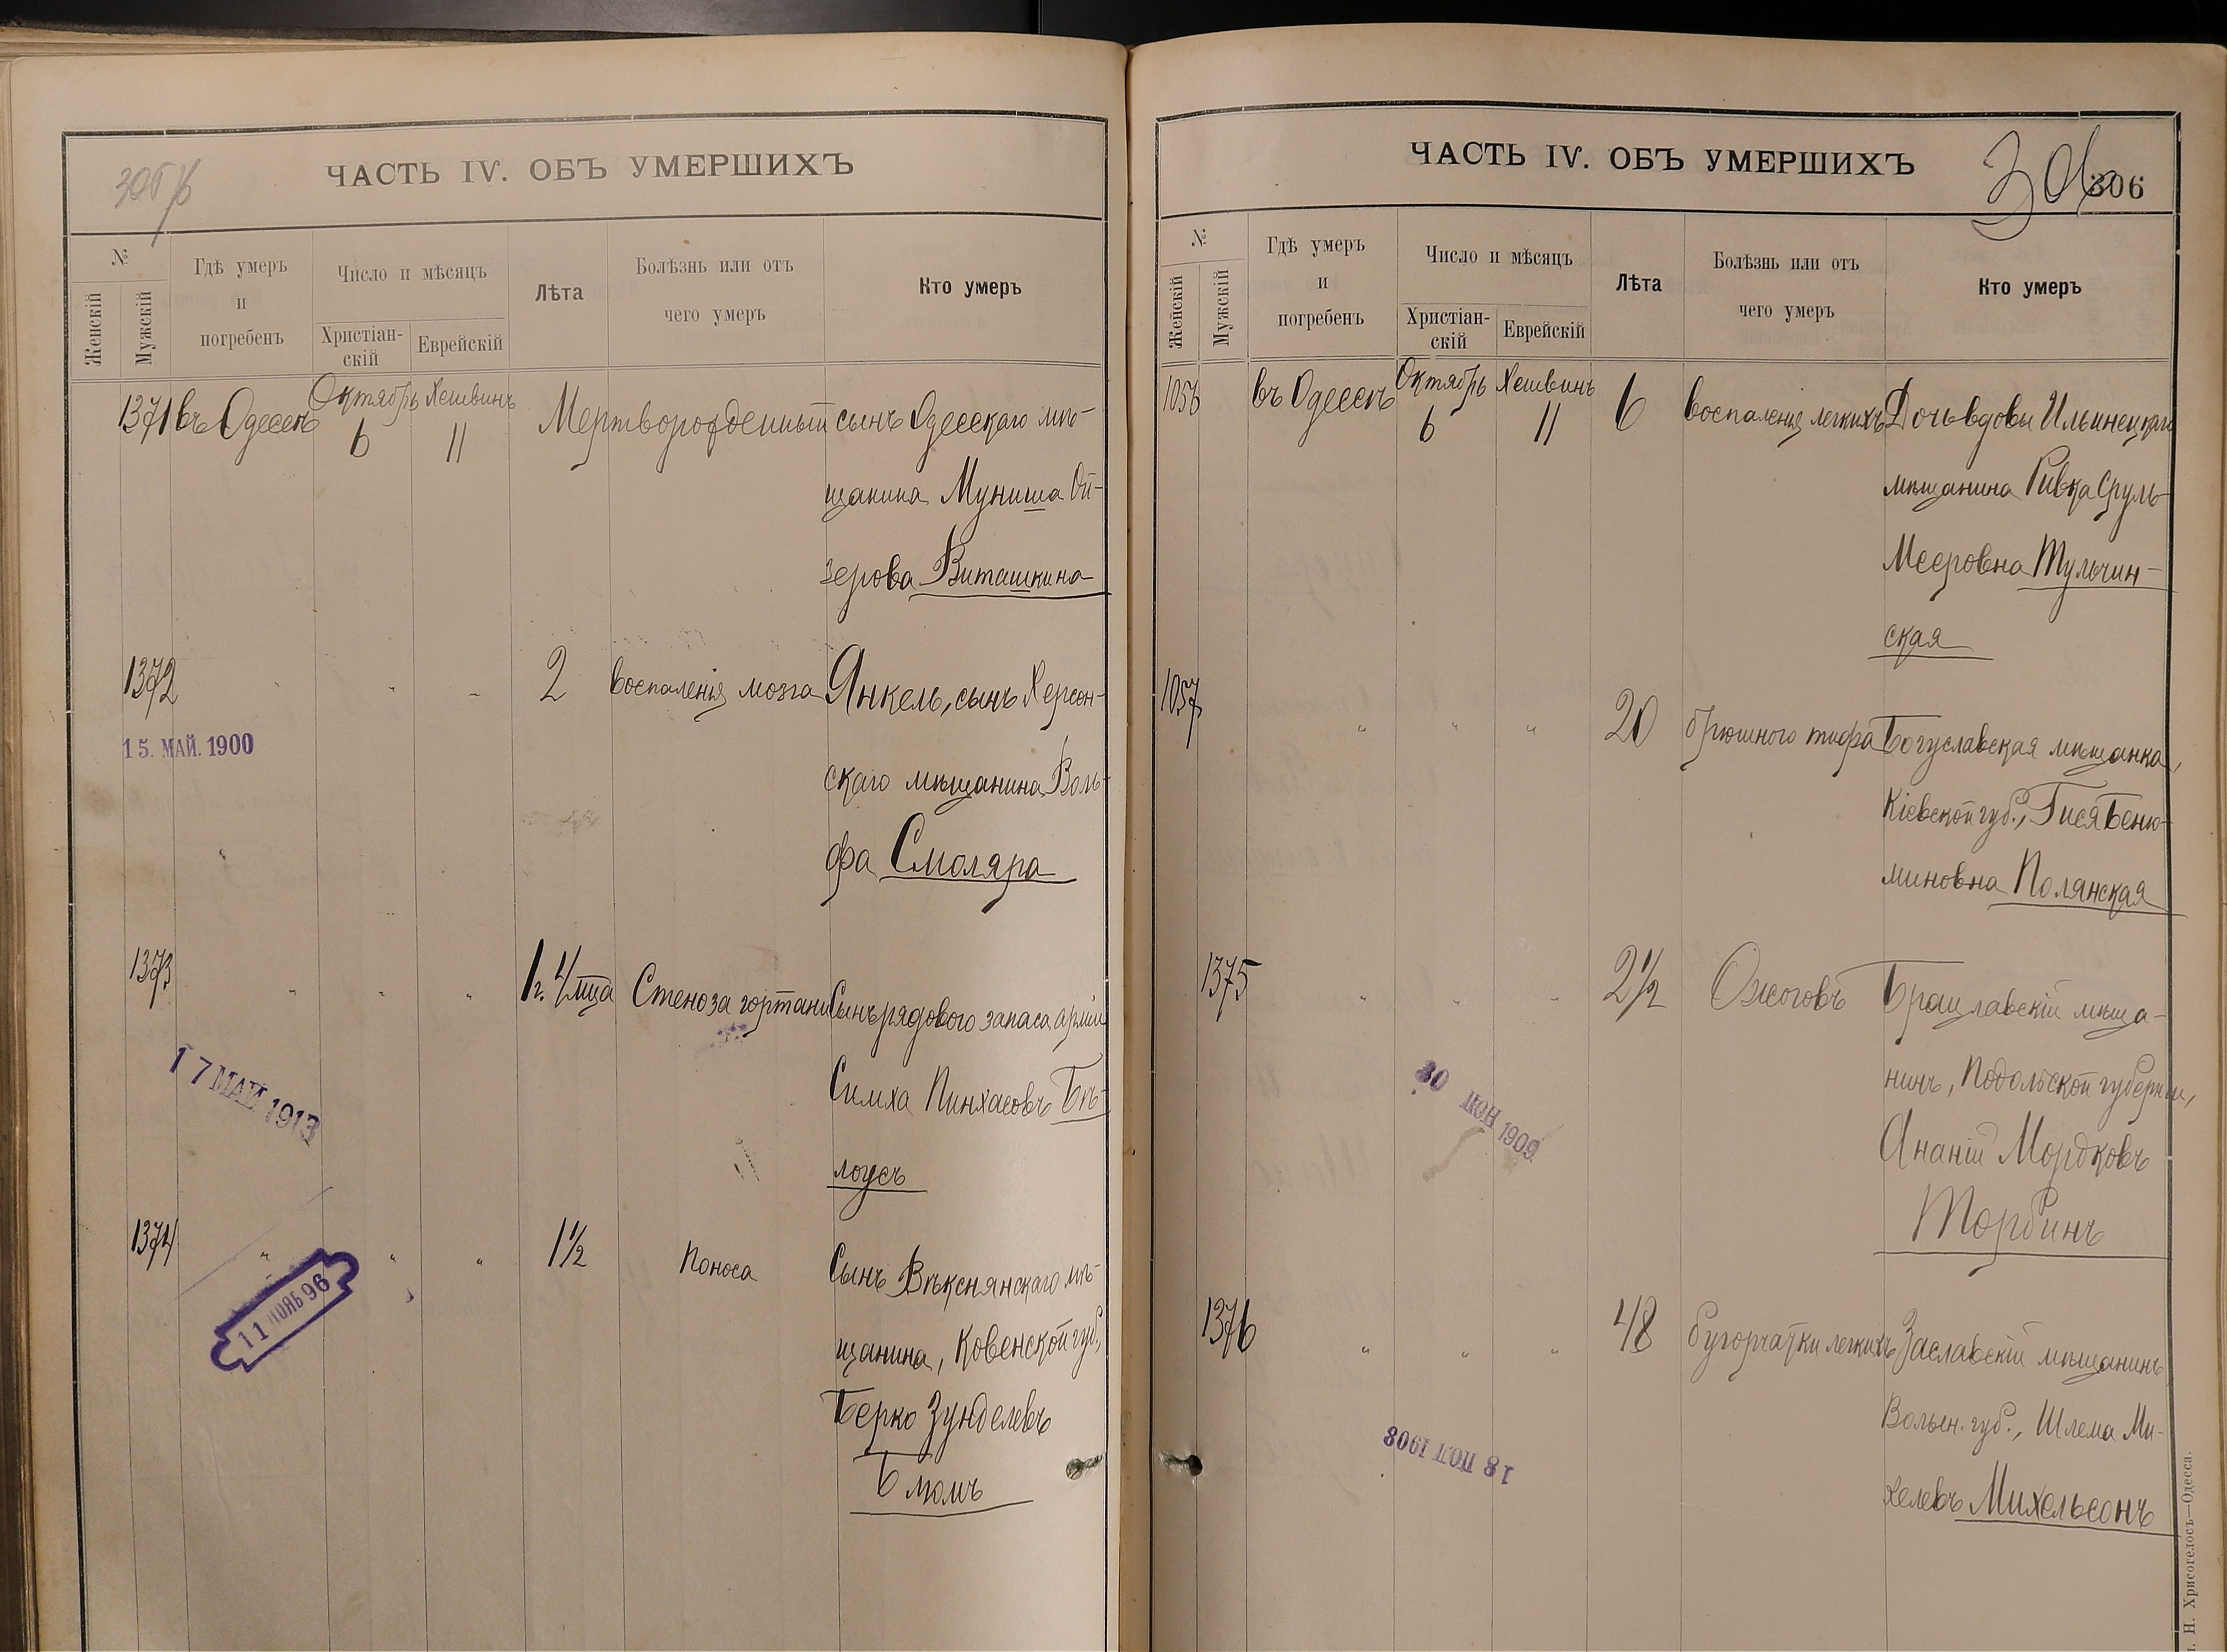 305 /б
ЧАСТЬ IV. ОБЪ УМЕРШИХЪ
№
Женскій
Мужскій
Гдѣ умеръ
и
погребенъ
Число и мѣсяцъ
Христіан-
скій
Еврейскій
Лѣта
Болѣзнь или отъ
чего умеръ
Кто умеръ
1371 въ Одессѣ Октябрь 6 Хешвинъ 11 Мертворожденный сынъ Одесскаго мѣ-
щанина Муниша Ой-
зерова Виташкина
1372 " " " 2 воспаленія мозга Янкель, сынъ Херсон-
15. МАЙ. 1900
скаго мѣщанина Воль-
фа Смоляра
1373 " " " 1 г. 4/мца Стеноза гортани Сынъ рядового запаса арміи
17 МАЙ 1913
Симха Пинхасовъ Бѣ-
лоусъ
1374 " " " 1½ поноса Сынъ Вѣкснянскаго мѣ-
11 НОЯБ 96
щанина, Ковенской губ.,
Берко Зунделевъ
Блюмъ
ЧАСТЬ IV. ОБЪ УМЕРШИХЪ
306
306
№
Женскій
Мужскій
Гдѣ умеръ
и
погребенъ
Число и мѣсяцъ
Христіан-
скій
Еврейскій
Лѣта
Болѣзнь или отъ
чего умеръ
Кто умеръ
1056 въ Одессѣ Октябрь 6 Хешвинъ 11 6 воспаленія легкихъ Дочь вдовы Ильинецкаго
мѣщанина Ривка Сруль-
Мееровна Тульчин-
ская
1057 " " " 20 брюшного тифа Богуславская мѣщанка,
Кіевской губ., Гися Беню-
миновна Полянская
1375 " " " 2½ Ожоговъ Брацлавскій мѣща-
нинъ, Подольской губерніи,
30 ІЮН 1909
Ананій Мордковъ
Торбинъ
1376 " " " 48 бугорчатки легкихъ Заславскій мѣщанинъ
Волын. губ., Шлема Ми-
18 1908
хелевъ Михельсонъ
Н. Хрисогелосъ—Одесса.